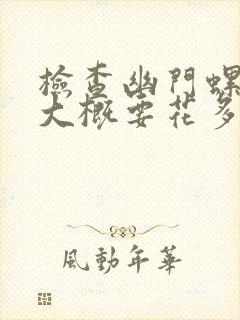 檢查幽門螺
大概要花多
風動年華